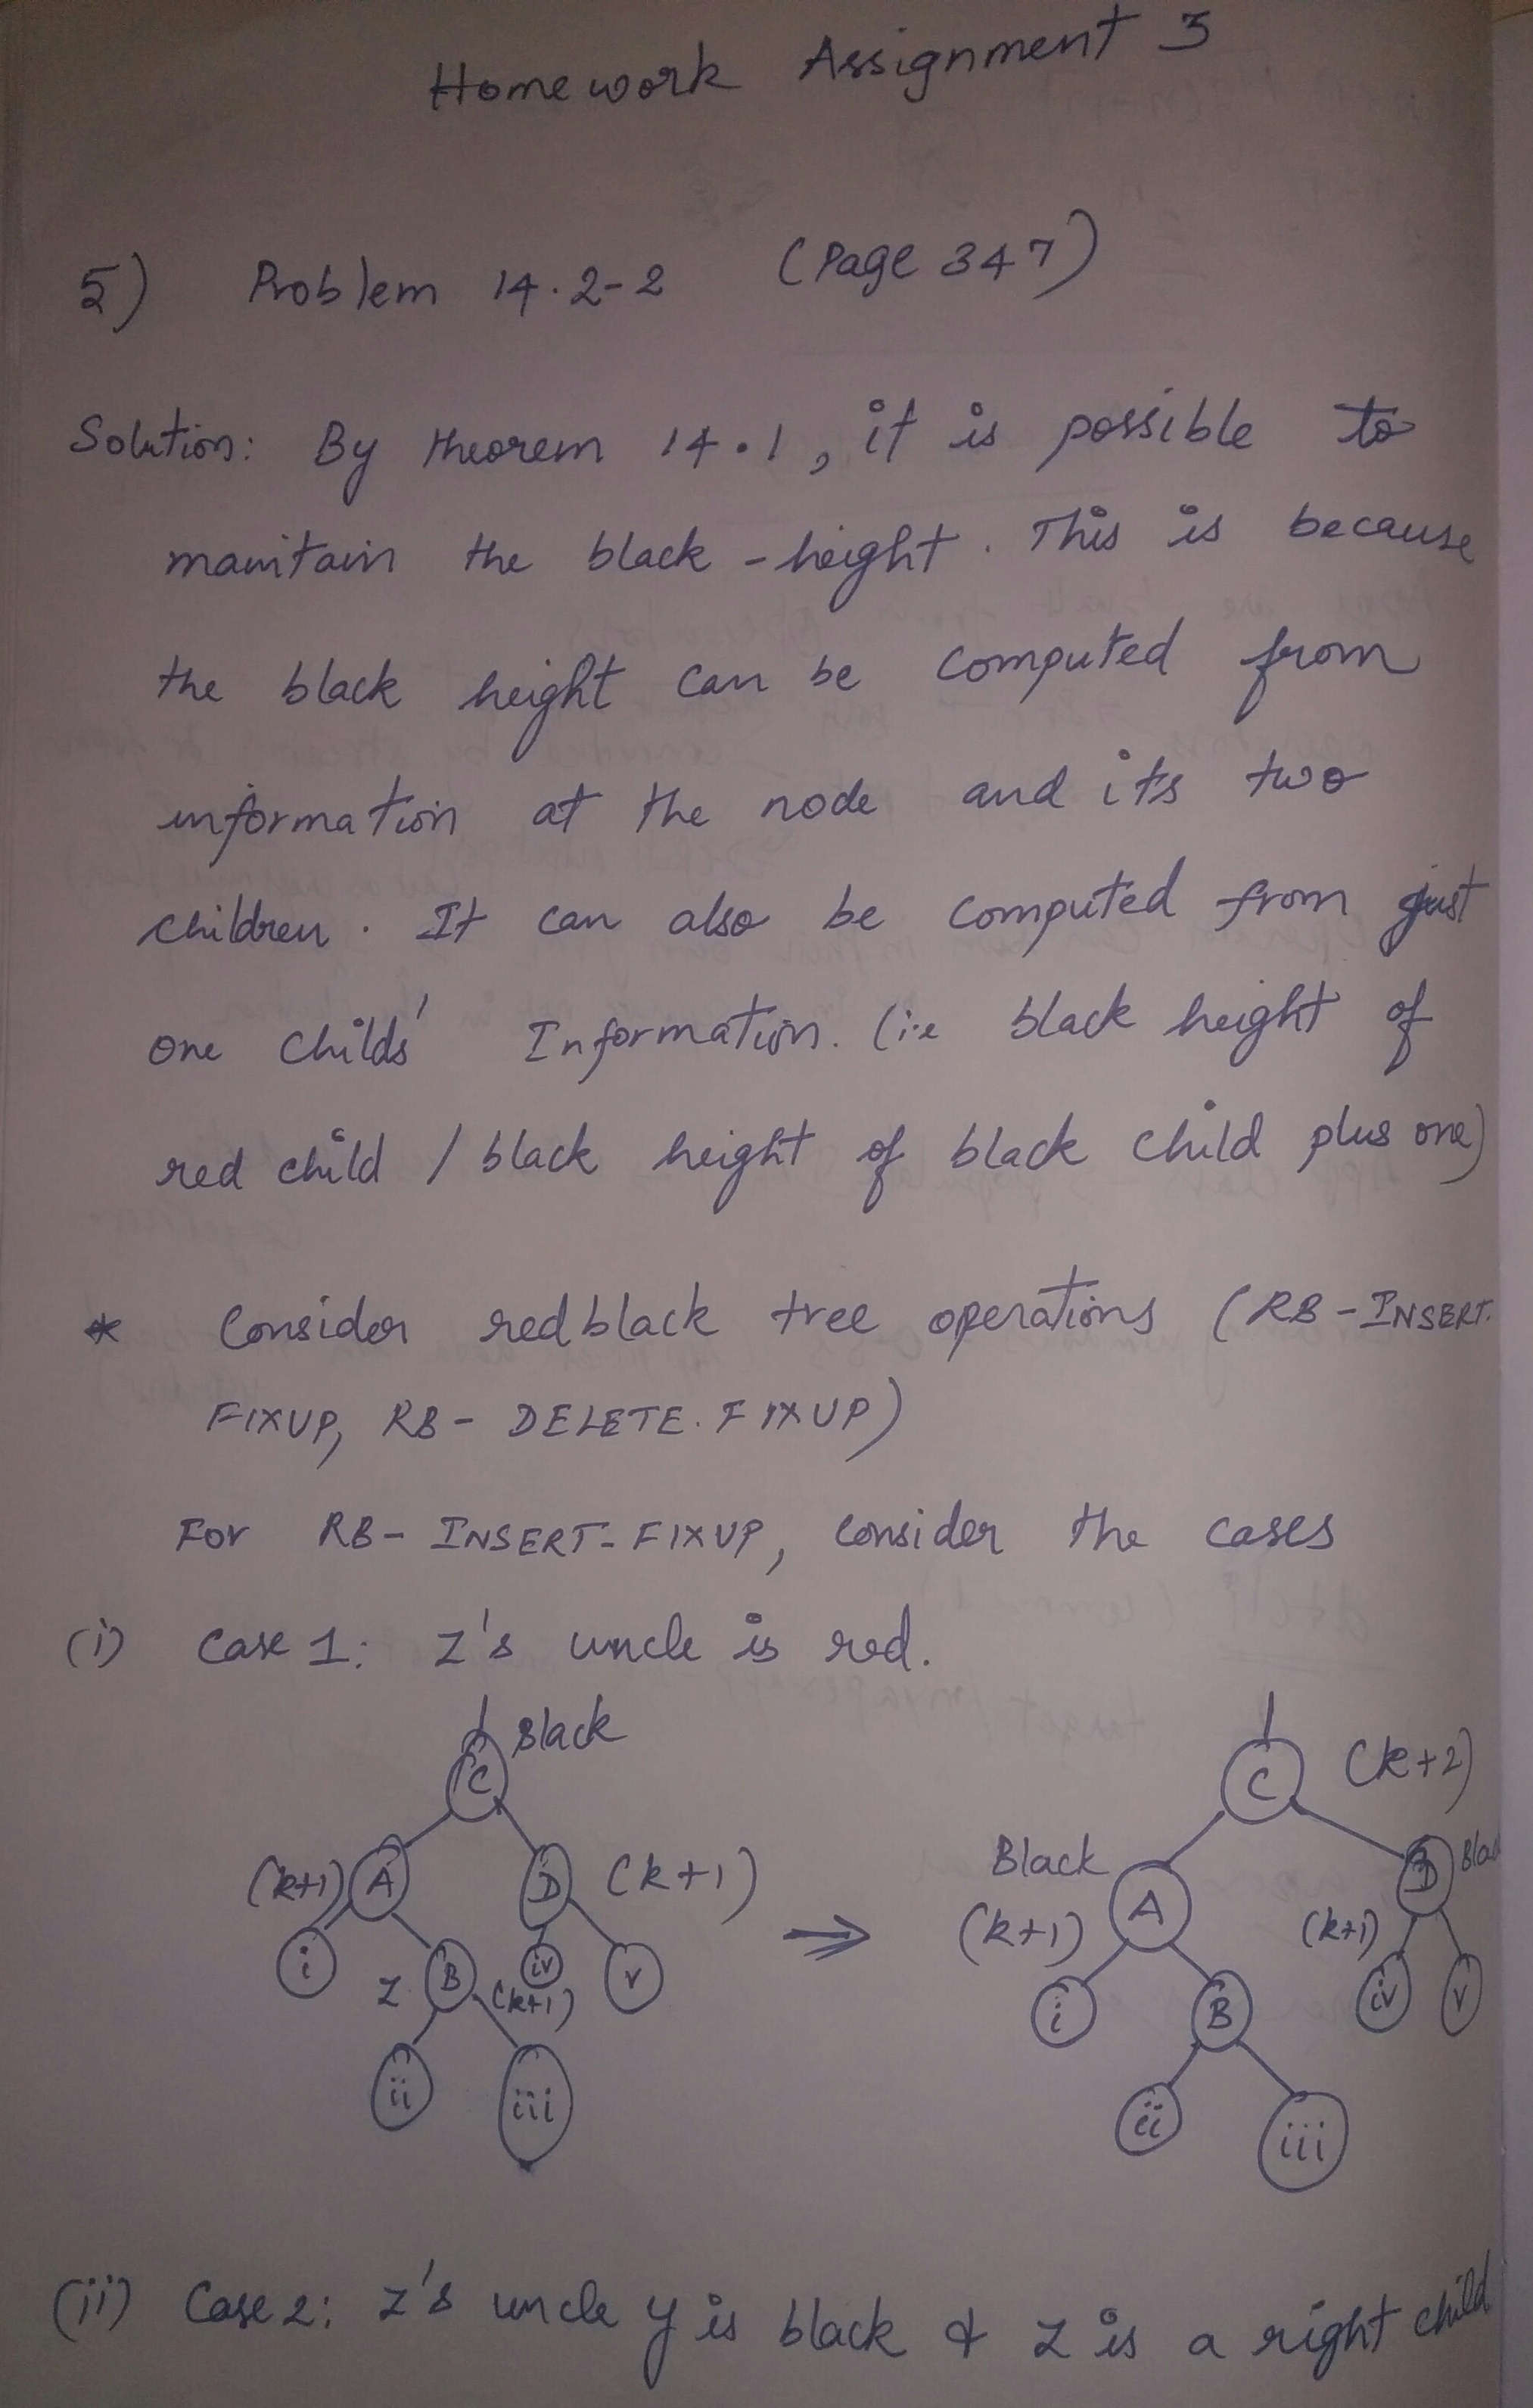 Homework Assignment 3
5) Problem 14.2-2 (Page 347)
Solution: By theorem 14.1, it is possible to
maintain the black-height. This is because
the black height can be computed from
information at the node and its two
children. It can also be computed from just
one childs' Information. (i.e black height of
red child / black height of black child plus one)
* Consider redblack tree operations (RB-INSERT.
FIXUP, RB-DELETE.FIXUP)
For RB-INSERT-FIXUP, consider the cases
(i) Case 1: z's uncle is red.
C Black
(k+1) A D (k+1)
i z B (k+1) iv v
ii iii
⇒
C (k+2)
Black A (k+1) D Blac (k+1)
i B iv v
ii iii
(ii) Case 2: z's uncle y is black & z is a right child